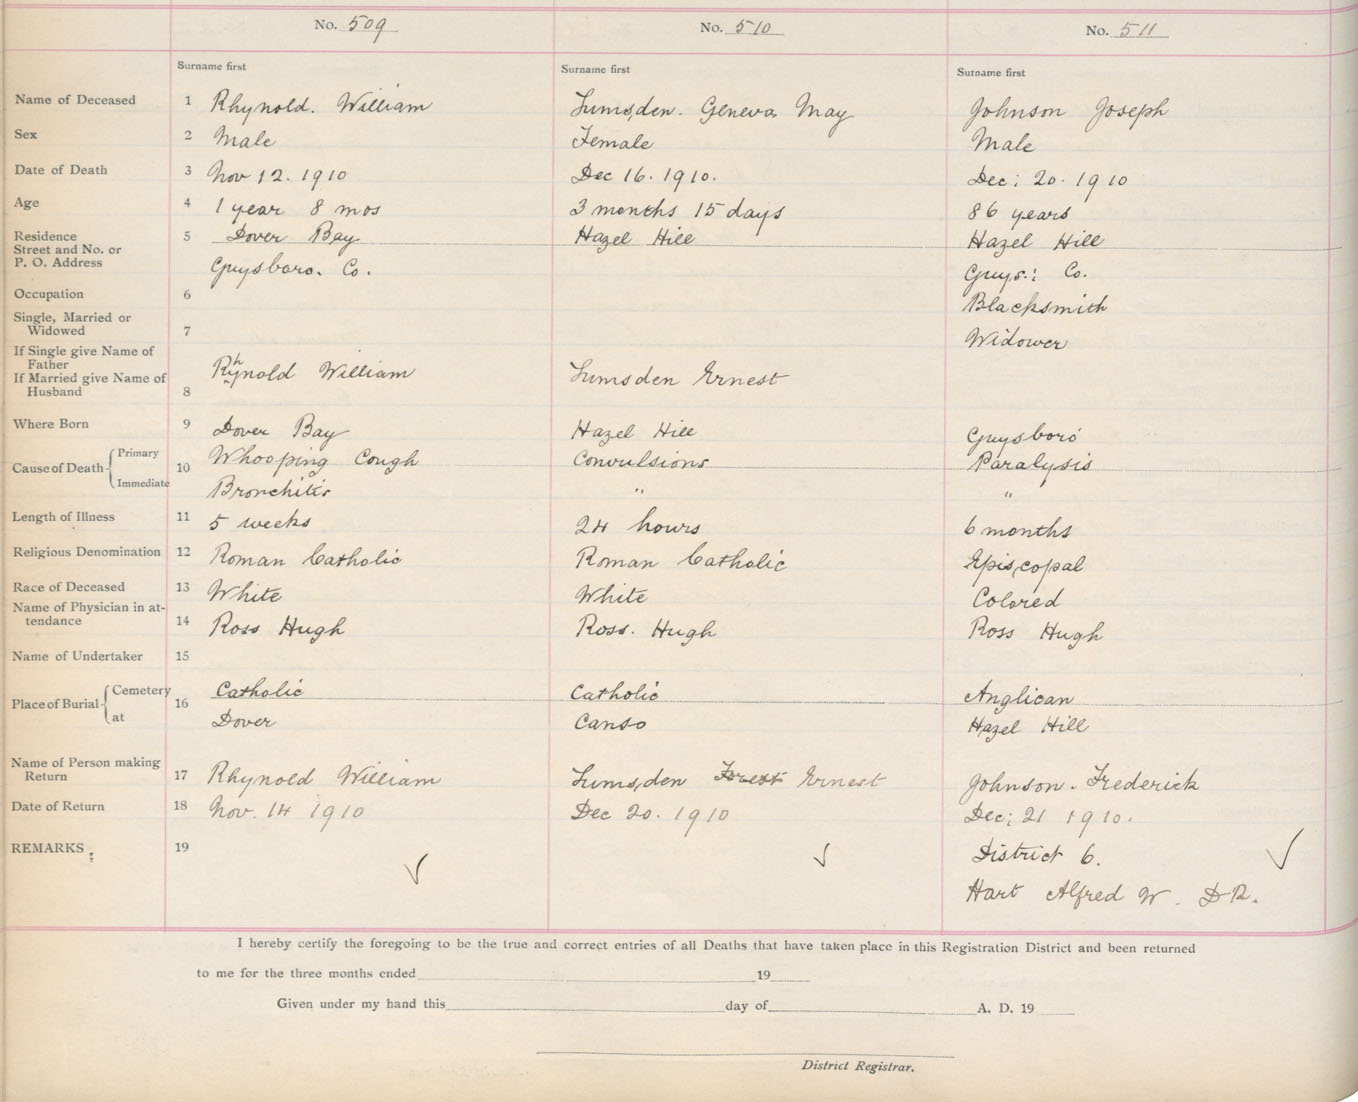 No. 509 No. 510 No. 511
Surname first Surname first Surname first
Name of Deceased 1 Rhynold. William Lumsden. Geneva May Johnson Joseph
Sex 2 Male Female Male
Date of Death 3 Nov 12. 1910 Dec 16. 1910. Dec: 20. 1910
Age 4 1 year 8 mos 3 months 15 days 86 years
Residence 5 Dover Bay Hazel Hill Hazel Hill
Street and No. or
P. O. Address Guysboro. Co. Guys: Co.
Occupation 6 Blacksmith
Single, Married or
Widowed 7 Widower
If Single give Name of
Father Rhynold William Lumsden Ernest
If Married give Name of
Husband 8
Where Born 9 Dover Bay Hazel Hill Guysboro
Cause of Death 10 Primary Whooping Cough Convulsions Paralysis
Immediate Bronchitis " "
Length of Illness 11 5 weeks 24 hours 6 months
Religious Denomination 12 Roman Catholic Roman Catholic Episcopal
Race of Deceased 13 White White Colored
Name of Physician in at-
tendance 14 Ross Hugh Ross. Hugh Ross Hugh
Name of Undertaker 15
Place of Burial 16 Cemetery Catholic Catholic Anglican
at Dover Canso Hazel Hill
Name of Person making
Return 17 Rhynold William Lumsden Forest Ernest Johnson. Frederick
Date of Return 18 Nov. 14 1910 Dec 20. 1910 Dec; 21 1910.
REMARKS : 19 District 6.
Hart Alfred W. D R.
I hereby certify the foregoing to be the true and correct entries of all Deaths that have taken place in this Registration District and been returned
to me for the three months ended 19
Given under my hand this day of A. D. 19
District Registrar.